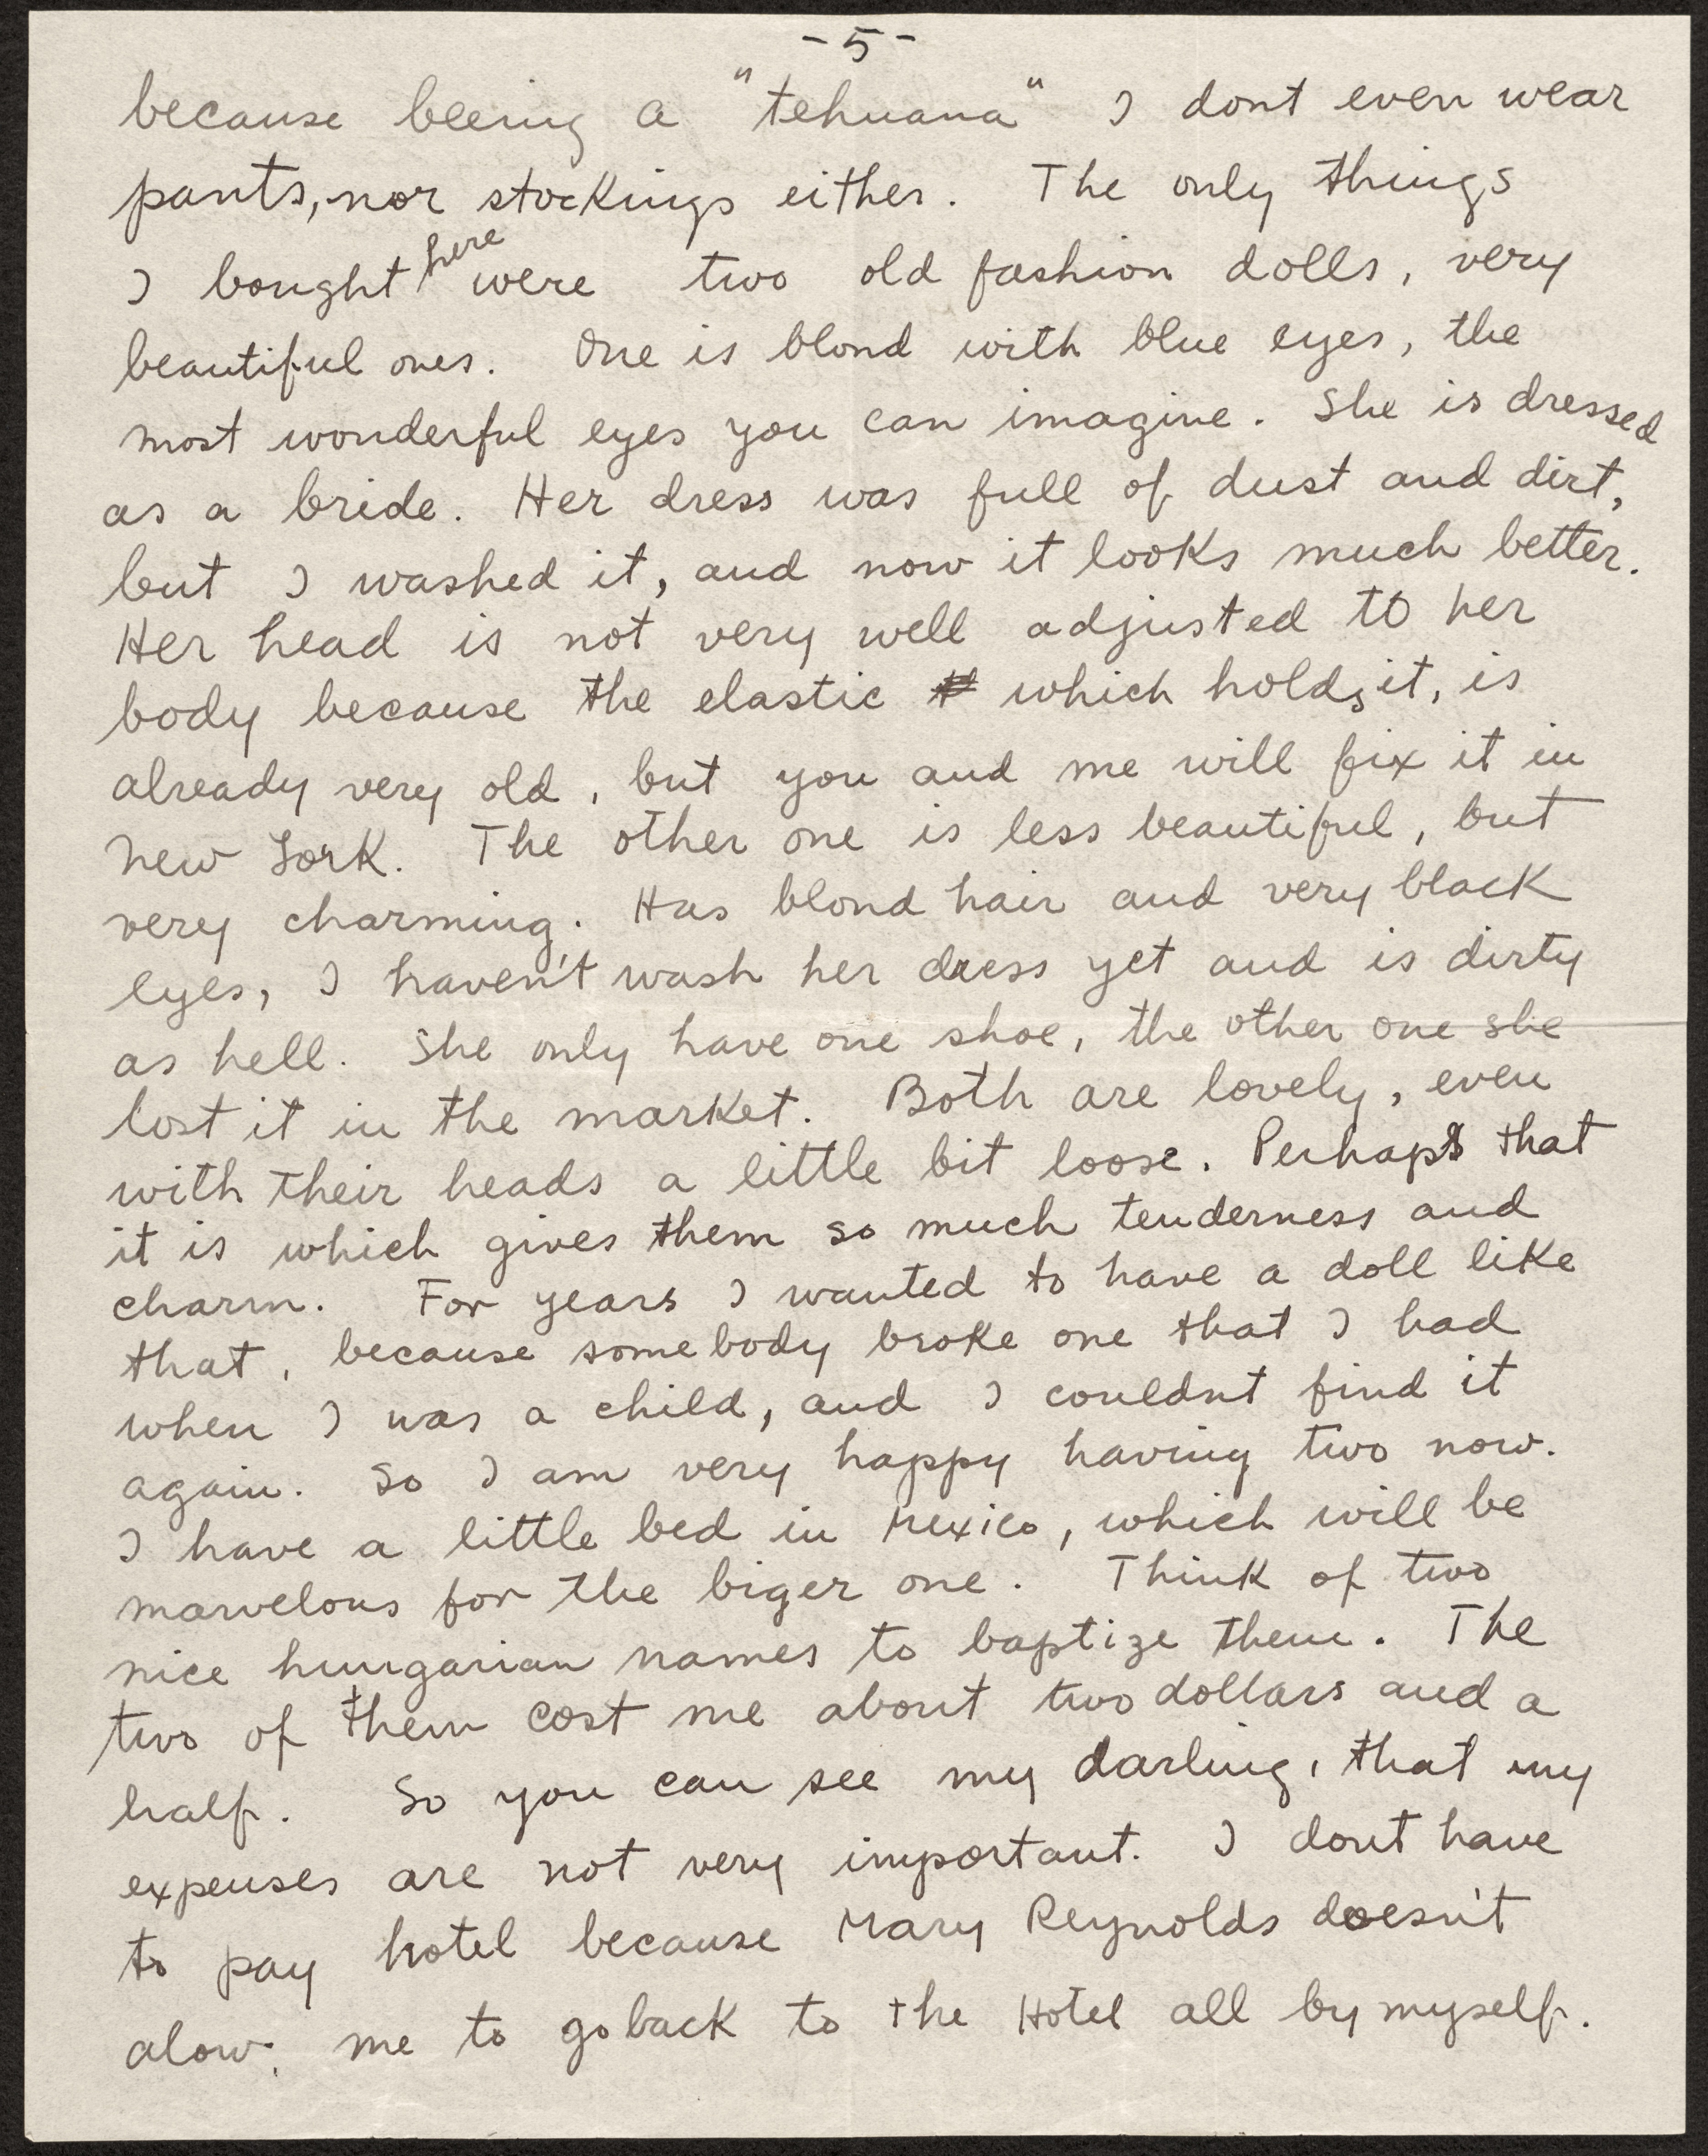 -5-
because beeing a "tehuana" I dont even wear
pants, nor stockings either. The only things
I bought here were two old fashion dolls, very
beautiful ones. One is blond with blue eyes, the
most wonderful eyes you can imagine. She is dressed
as a bride. Her dress was full of dust and dirt,
but I washed it, and now it looks much better.
Her head is not very well adjusted to her
body because the elastic which holds it, is
already very old, but you and me will fix it in
New York. The other one is less beautiful, but
very charming. Has blond hair and very black
eyes, I haven't wash her dress yet and is dirty
as hell. She only have one shoe, the other one she
lost it in the market. Both are lovely, even
with their heads a little bit loose. Perhaps that
it is which gives them so much tenderness and
charm. For years I wanted to have a doll like
that, because somebody broke one that I had
when I was a child, and I couldnt find it
again. So I am very happy having two now.
I have a little bed in Mexico, which will be
marvelous for the biger one. Think of two
nice hungarian names to baptize them. The
two of them cost me about two dollars and a
half. So you can see my darling, that my
expenses are not very important. I dont have
to pay hotel because Mary Reynolds doesn't
alow me to go back to the Hotel all by myself.